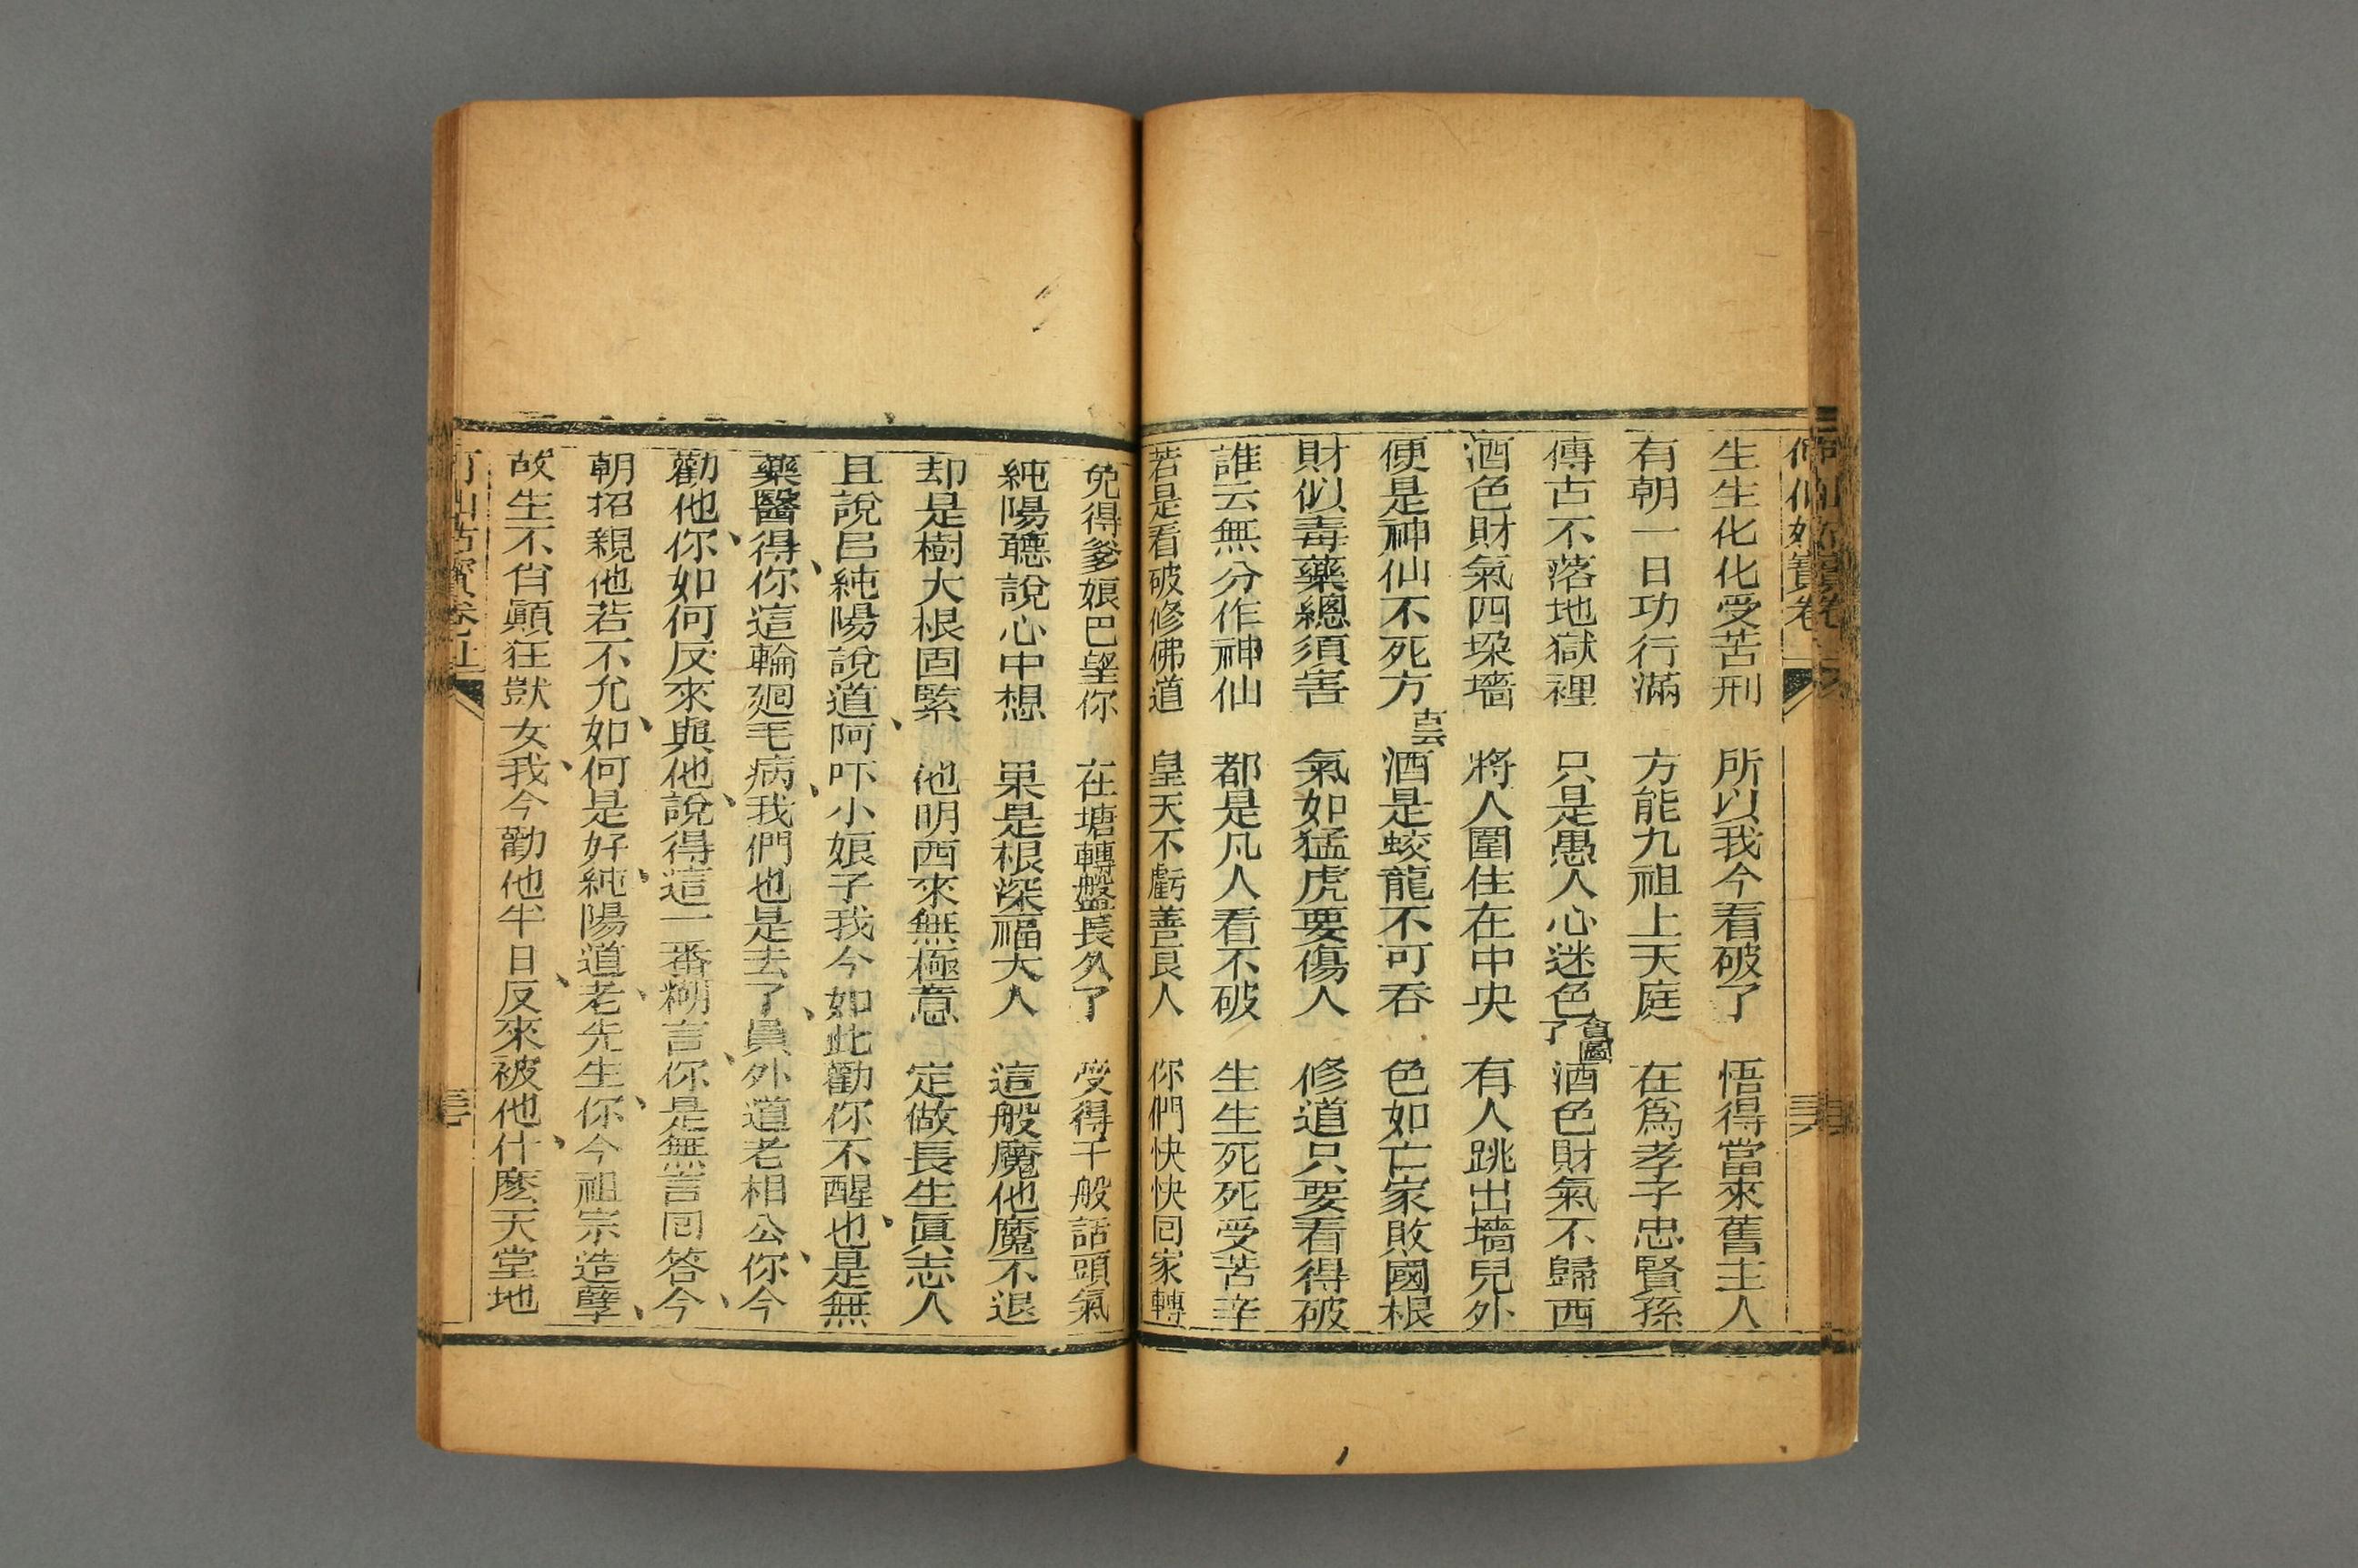 生生化化受苦刑 所以我今看破了 悟得當來舊主人
有朝一日功行滿 方能九祖上天庭 在爲孝子忠賢孫
傳古不落地獄裡 只是愚人心迷色了 酒色財氣不歸西
酒色財氣四垛墻 將人圍住在中央 有人跳出墻兒外
便是神仙不死方 酒是蛟龍不可吞 色如亡家敗國根
財似毒藥總須害 氣如猛虎要傷人 修道只要看得破
誰云無分作神仙 都是凡人看不破 生生死死受苦辛
若是看破修佛道 皇天不虧善良人 你們快快回家轉
免得爹娘巴望你 在塘轉盤長久了 受得千般話頭氣
純陽聽說心中想 果是根深福大人 這般魔他魔不退
却是樹大根固緊 他明西來無極意 定做長生眞志人
且說呂純陽說道、阿吓小娘子我今如此勸你不醒、也是無
藥醫得、你這輪廻毛病、我們也是去了、員外道老相公、你今
勸他、你如何反來與他、說得這一番糊言、你是無言回答、今
朝招親他若不允、如何是好、純陽道、老先生、你今祖宗造孽、
故生不肖顚狂獃女、我今勸他半日、反來被他、什麽天堂地